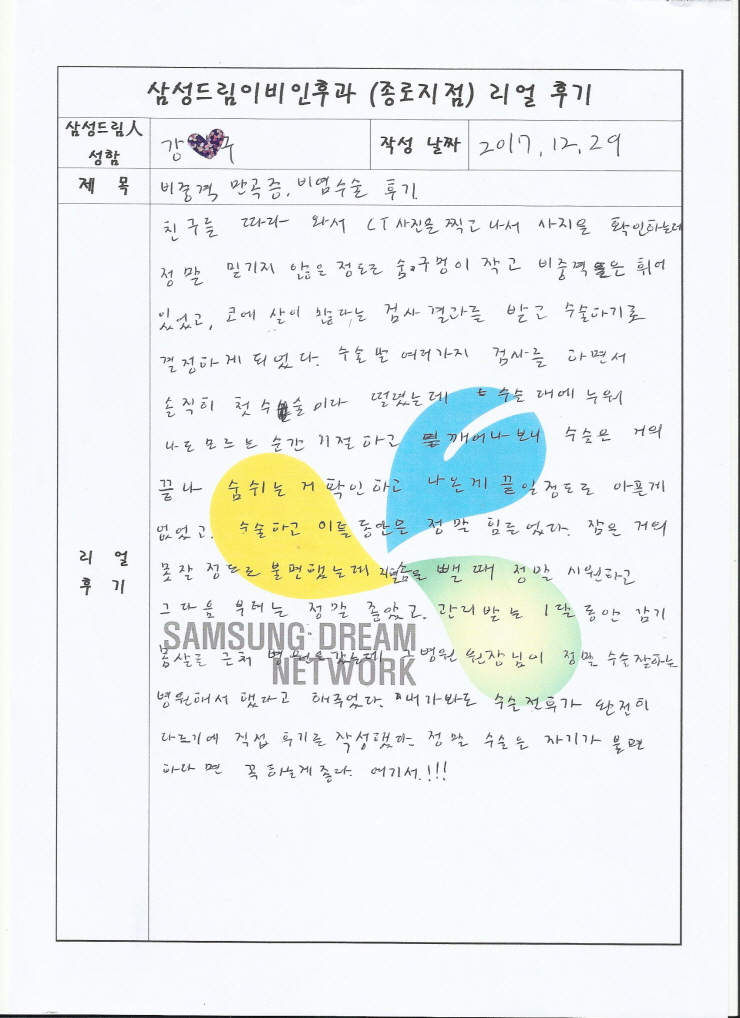 삼성드림이비인후과 (종로지점) 리얼 후기
삼성드림人 성함
강 구
작성 날짜
2017.12.29
제 목
비중격 만곡증, 비염수술 후기.
리 얼
후 기
친구를 따라 와서 CT사진을 찍고 나서 사진을 확인하는데
정말 믿기지 않은 정도로 숨구멍이 작고 비중격은 휘어
있었고, 코에 살이 많다는 검사결과를 받고 수술하기로
결정하게 되었다. 수술 날 여러가지 검사를 하면서
솔직히 첫수술이라 떨렸는데 수술대에 누워
나도 모르는 순간 기절하고 깨어나 보니 수술은 거의
끝나 숨쉬는거 확인하고 나온게 끝일정도로 아픈게
없었고. 수술하고 이틀동안은 정말 힘들었다. 잠은 거의
못잘 정도로 불편했는데 솜을 뺄 때 정말 시원하고
그다음 부터는 정말 좋았고. 관리받는 1달동안 감기
몸살로 근처 병원을 갔는데 그병원 원장님이 정말 수술잘하는
병원에서 했다고 해주었다. 내가봐도 수술전후가 완전히
다르기에 직접 후기를 작성했다. 정말 수술은 자기가 불편
하다면 꼭 하는게좋다. 여기서.!!!
SAMSUNG DREAM
NETWORK